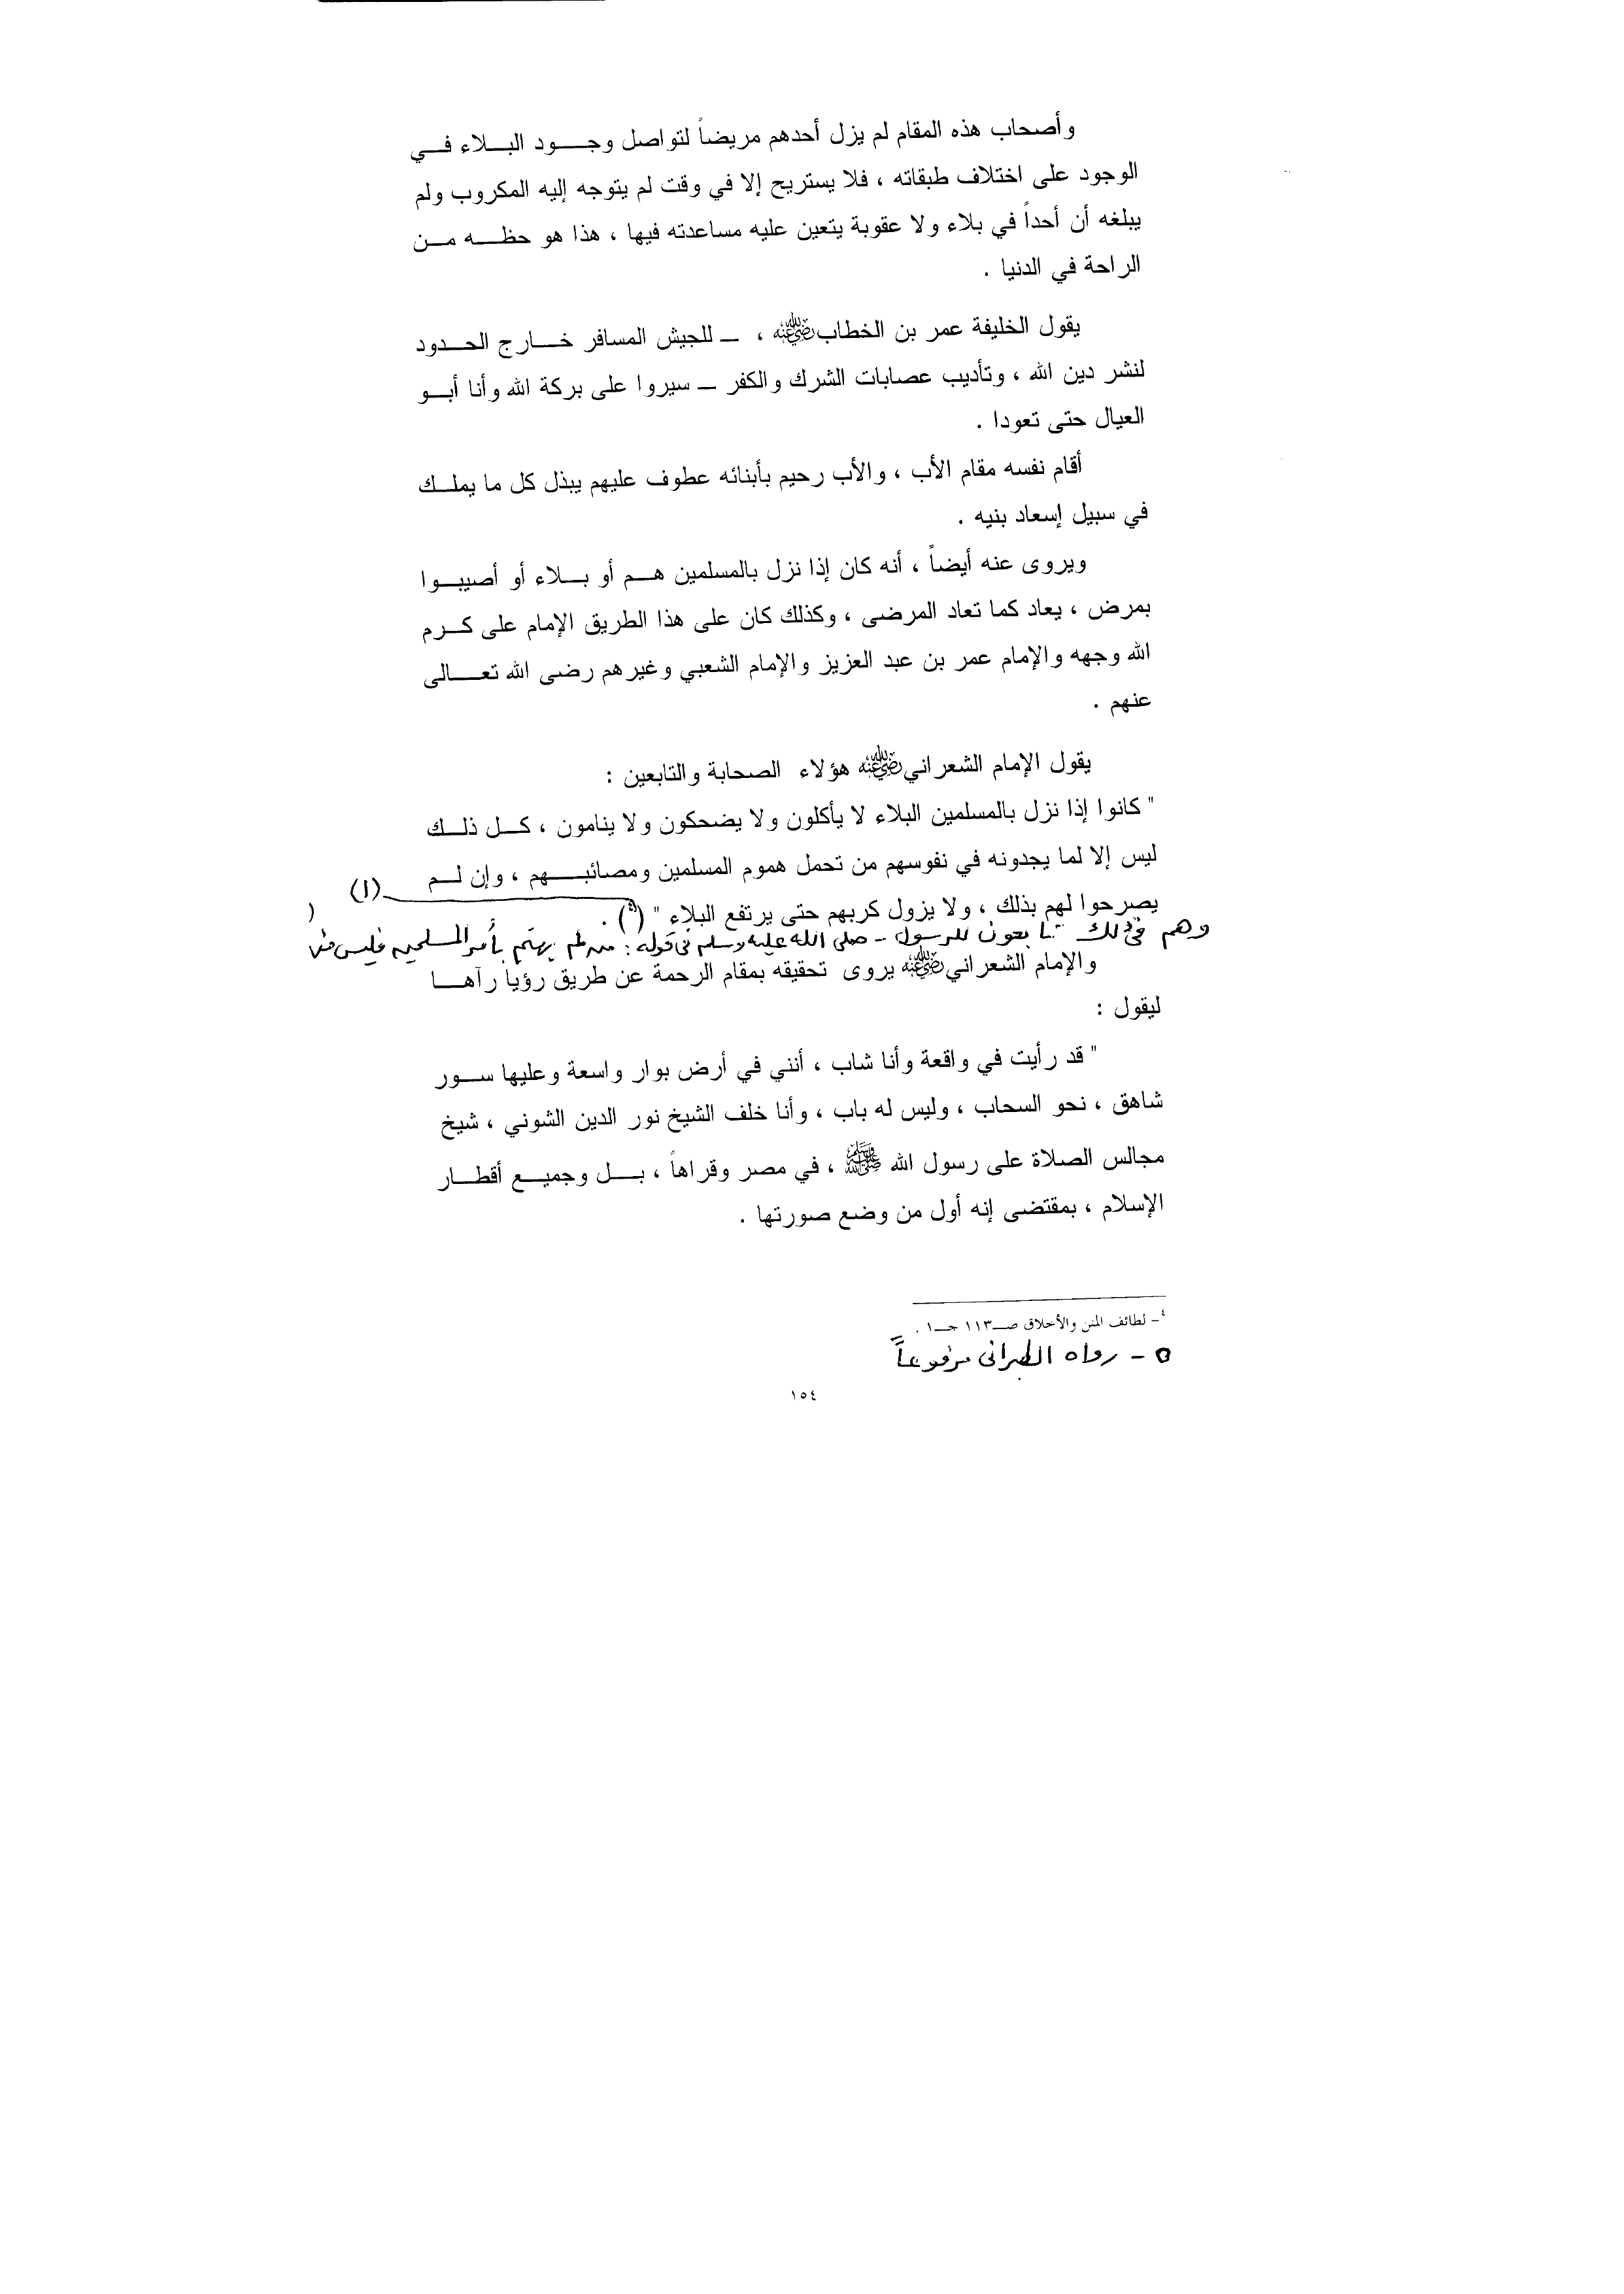 وأصحاب هذه المقام لم يزل أحدهم مريضاً لتواصل وجود البلاء في
الوجود على اختلاف طبقاته ، فلا يستريح إلا في وقت لم يتوجه إليه المكروب ولم
يبلغه أن أحداً في بلاء ولا عقوبة يتعين عليه مساعدته فيها ، هذا هو حظه من
الراحة في الدنيا .
يقول الخليفة عمر بن الخطاب رضي الله عنه ، – للجيش المسافر خارج الحدود
لنشر دين الله ، وتأديب عصابات الشرك والكفر – سيروا على بركة الله وأنا أبو
العيال حتى تعودا .
أقام نفسه مقام الأب ، والأب رحيم بأبنائه عطوف عليهم يبذل كل ما يملك
في سبيل إسعاد بنيه .
ويروى عنه أيضاً ، أنه كان إذا نزل بالمسلمين هم أو بلاء أو أصيبوا
بمرض ، يعاد كما تعاد المرضى ، وكذلك كان على هذا الطريق الإمام على كرم
الله وجهه والإمام عمر بن عبد العزيز والإمام الشعبي وغيرهم رضى الله تعالى
عنهم .
يقول الإمام الشعراني رضي الله عنه هؤلاء الصحابة والتابعين :
" كانوا إذا نزل بالمسلمين البلاء لا يأكلون ولا يضحكون ولا ينامون ، كل ذلك
ليس إلا لما يجدونه في نفوسهم من تحمل هموم المسلمين ومصائبهم ، وإن لم
يصرحوا لهم بذلك ، ولا يزول كربهم حتى يرتفع البلاء " (٤) . (١)
وهم في ذلك تابعون للرسول - صلى الله عليه وسلم فى قوله : من لم يهتم بأمر المسلمين فليس منا
والإمام الشعراني رضي الله عنه يروى تحقيقه بمقام الرحمة عن طريق رؤيا رآها
ليقول :
" قد رأيت في واقعة وأنا شاب ، أنني في أرض بوار واسعة وعليها سور
شاهق ، نحو السحاب ، وليس له باب ، وأنا خلف الشيخ نور الدين الشوني ، شيخ
مجالس الصلاة على رسول الله ﷺ ، في مصر وقراهاً ، بل وجميع أقطار
الإسلام ، بمقتضى إنه أول من وضع صورتها .
٤- لطائف المنن والأخلاق صـ١١٣ جـ١ .
٥ - رواه الطبرانى مرفوعاً
١٥٤